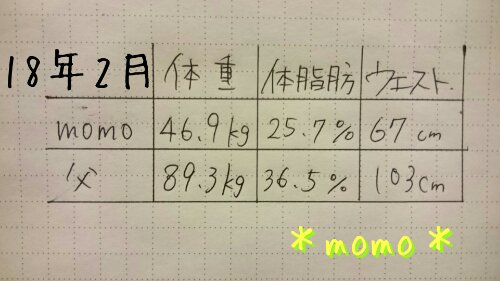 18年2月 体重 体脂肪 ウエスト.
momo 46.9kg 25.7% 67cm
父 89.3kg 36.5% 103cm
*momo*